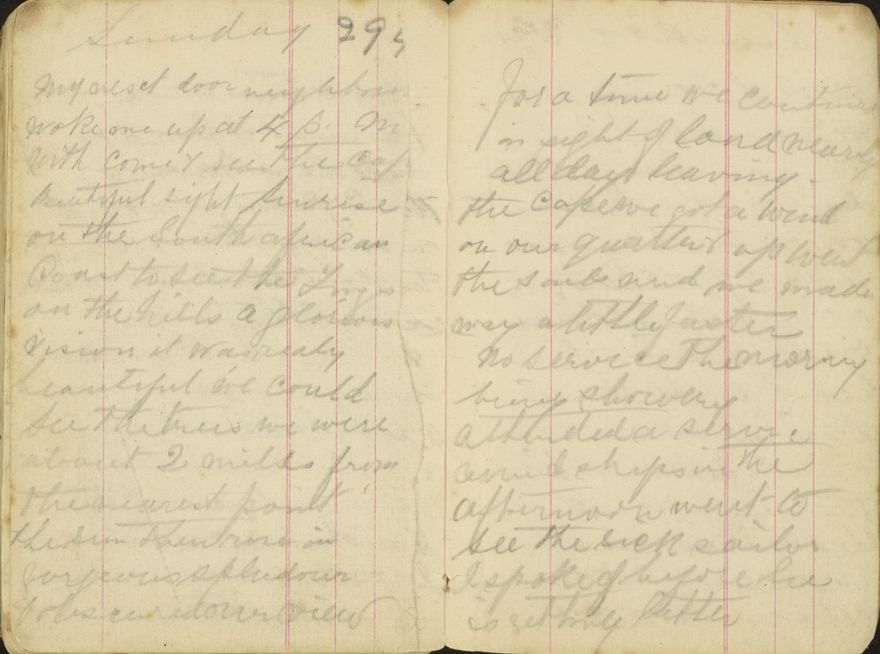 Sunday 29
My next door neighbour
woke me up at 4 p. m
with come & see the Cape
Beautiful sight Sunrise
on the South african
Coast to see the
on the hills a glorious
vision it was realy
beautiful we could
see the trees we were
about 2 miles from
the nearest point
the sun then rose in
gorgeous splendour
& obscured our view
for a time we continued
in sight of land nearly
all day leaving
the Cape we got a wind
on our quarter & up went
the sails and we made
way a little faster
No service the morning
being showery
attended a service
amid ships in the
afternoon went to
see the sick sailor
I spoke of before he
is getting better